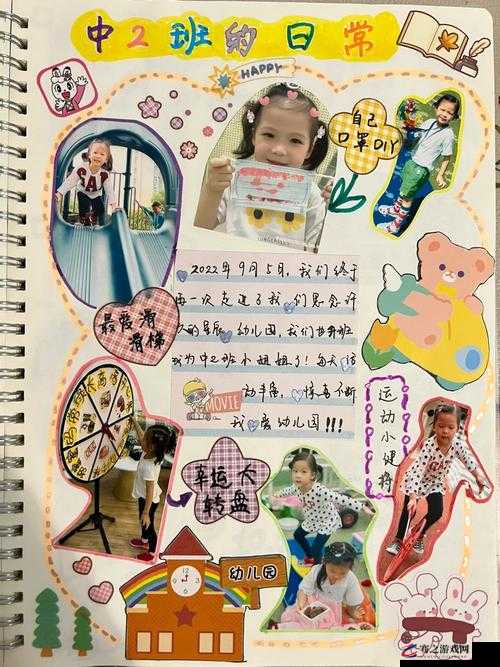 中2班的日常
HAPPY
自己
口罩DIY
最爱滑
滑梯
2022年9月5月，我们终于
再一次走进了我们思念许
久的星辰幼儿园，我们也升班
成为中2班小姐姐了！每天活
动丰富，惊喜不断
我爱幼儿园!!!
MOVIE
运动小健将
幸运大
转盘
幼儿园